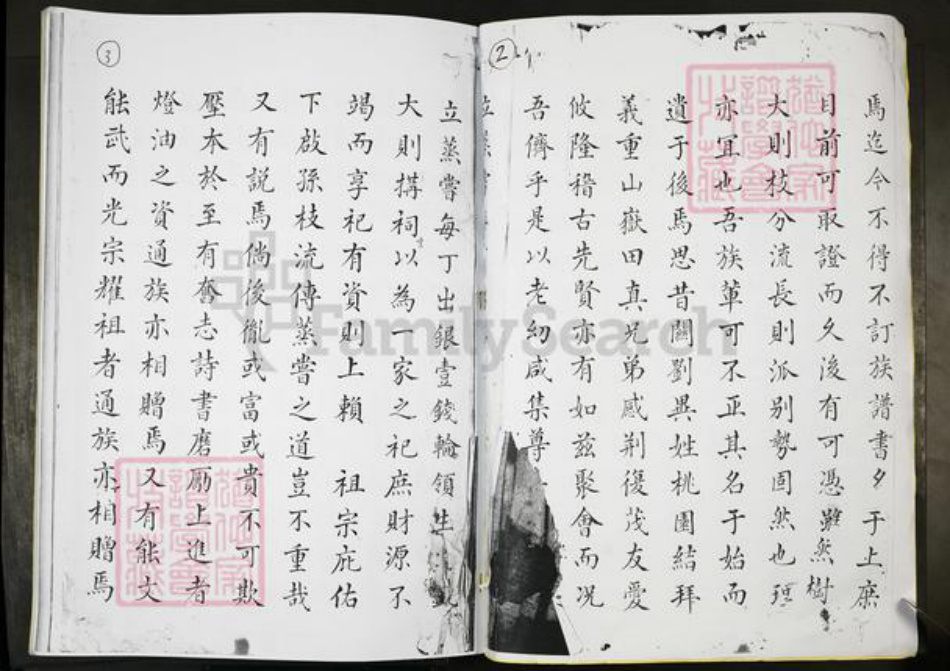 ②
焉迄今不得不訂族譜書夕于上庶
目前可取證而久後有可憑雖然樹
大則枝分流長則派別勢固然也理
亦宜也吾族葷可不正其名于始而
遺于後焉思昔關劉異姓桃園結拜
義重山嶽田真兄弟感荆復茂友愛
攸隆稽古先賢亦有如茲聚會而况
吾儕乎是以老幼咸集尊
③
立蒸嘗每丁出銀壹錢輪領生
大則搆祠以為一家之祀庶財源不
竭而享祀有資則上賴 祖宗庇佑
下啟孫枝流傳蒸嘗之道豈不重哉
又有説焉倘後胤或富或貴不可欺
壓本於至有奮志詩書磨勵上進者
燈油之資通族亦相贈焉又有能文
能武而光宗耀祖者通族亦相贈焉
FamilySearch